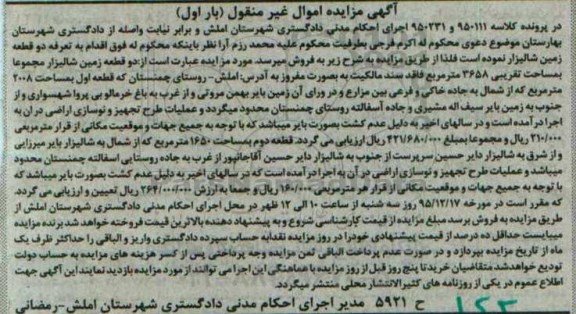 آگهی مزایده اموال غیر منقول (بار اول)
در پرونده کلاسه ۹۵۰۱۱۱ و ۹۵۰۲۳۱ اجرای احکام مدنی دادگستری شهرستان املش و برابر نیابت واصله از دادگستری شهرستان
بهارستان موضوع دعوی محکوم له اکرم فرجی بطرفیت محکوم علیه محمد رزم آرا نظر باینکه محکوم له فوق اقدام به تعرفه دو قطعه
زمین شالیزار نموده است فلذا از طریق مزایده به شرح زیر به فروش میرسد. مورد مزایده عبارت است از: دو قطعه زمین شالیزار مجموعا
بمساحت تقریبی ۳۶۵۸ مترمربع فاقد سند مالکیت به صورت مفروز به آدرس: املش- روستای چمنستان که قطعه اول بمساحت ۲۰۰۸
مترمربع که از شمال به جاده خاکی و فرعی بین مزارع و در ورای آن زمین بایر بهمن مروتی و از غرب به باغ خرمالو بی پروا شهسواری و از
جنوب به زمین بایر سیف اله مشیری و جاده آسفالته روستای چمنستان محدود میگردد و عملیات طرح تجهیز و نوسازی اراضی در آن به
اجرا در آمده است و در سالهای اخیر به دلیل عدم کشت بصورت بایر میباشد که با توجه به جمیع جهات و موقعیت مکانی از قرار مترمربعی
۲۱۰/۰۰۰ ریال و مجموعا بمبلغ ۴۲۱/۶۸۰/۰۰۰ ریال ارزیابی می گردد. قطعه دوم بمساحت ۱۶۵۰ مترمربع که از شمال به شالیزار بایر میرزایی
و از شرق به شالیزار دایر حسین سرپرست از جنوب به شالیزار دایر حسین آقاجانپور از غرب به جاده روستایی اسفالته چمنستان محدود
میباشد و عملیات طرح تجهیز و نوسازی اراضی در آن به اجرا در آمده است که در سالهای اخیر به دلیل عدم کشت بصورت بایر میباشد که
با توجه به جمیع جهات و موقعیت مکانی از قرار هر مترمربعی ۱۶۰/۰۰۰ ریال و جمعا به ارزش ۲۶۴/۰۰۰/۰۰۰ ریال تعیین و ارزیابی می گردد.
که مقرر است در مورخه ۹۵/۱۲/۱۷ روز سه شنبه از ساعت ۱۰ الی ۱۲ ظهر در محل اجرای احکام مدنی دادگستری شهرستان املش از
طریق مزایده به فروش برسد مبلغ مزایده از قیمت کارشناسی شروع و به پیشنهاد دهنده بالاترین قیمت فروخته خواهد شد برنده مزایده
میبایست حداقل ده درصد از قیمت پیشنهادی خود را در روز مزایده نقدا به حساب سپرده دادگستری واریز و الباقی را حداکثر ظرف یک
ماه از تاریخ مزایده بپردازد و در صورت عدم پرداخت الباقی ثمن مزایده وجه پرداختی پس از کسر هزینه های مزایده به حساب دولت
تودیع خواهد شد متقاضیان خرید تا پنج روز قبل از روز مزایده با هماهنگی این اجرا می توانند از مورد مزایده بازدید نمایند این آگهی جهت
اطلاع عموم در یکی از روزنامه های کثیرالانتشار محلی منتشر میگردد.
ح ۵۹۲۱ مدیر اجرای احکام مدنی دادگستری شهرستان املش-رمضانی